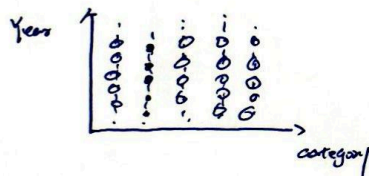 Year
category